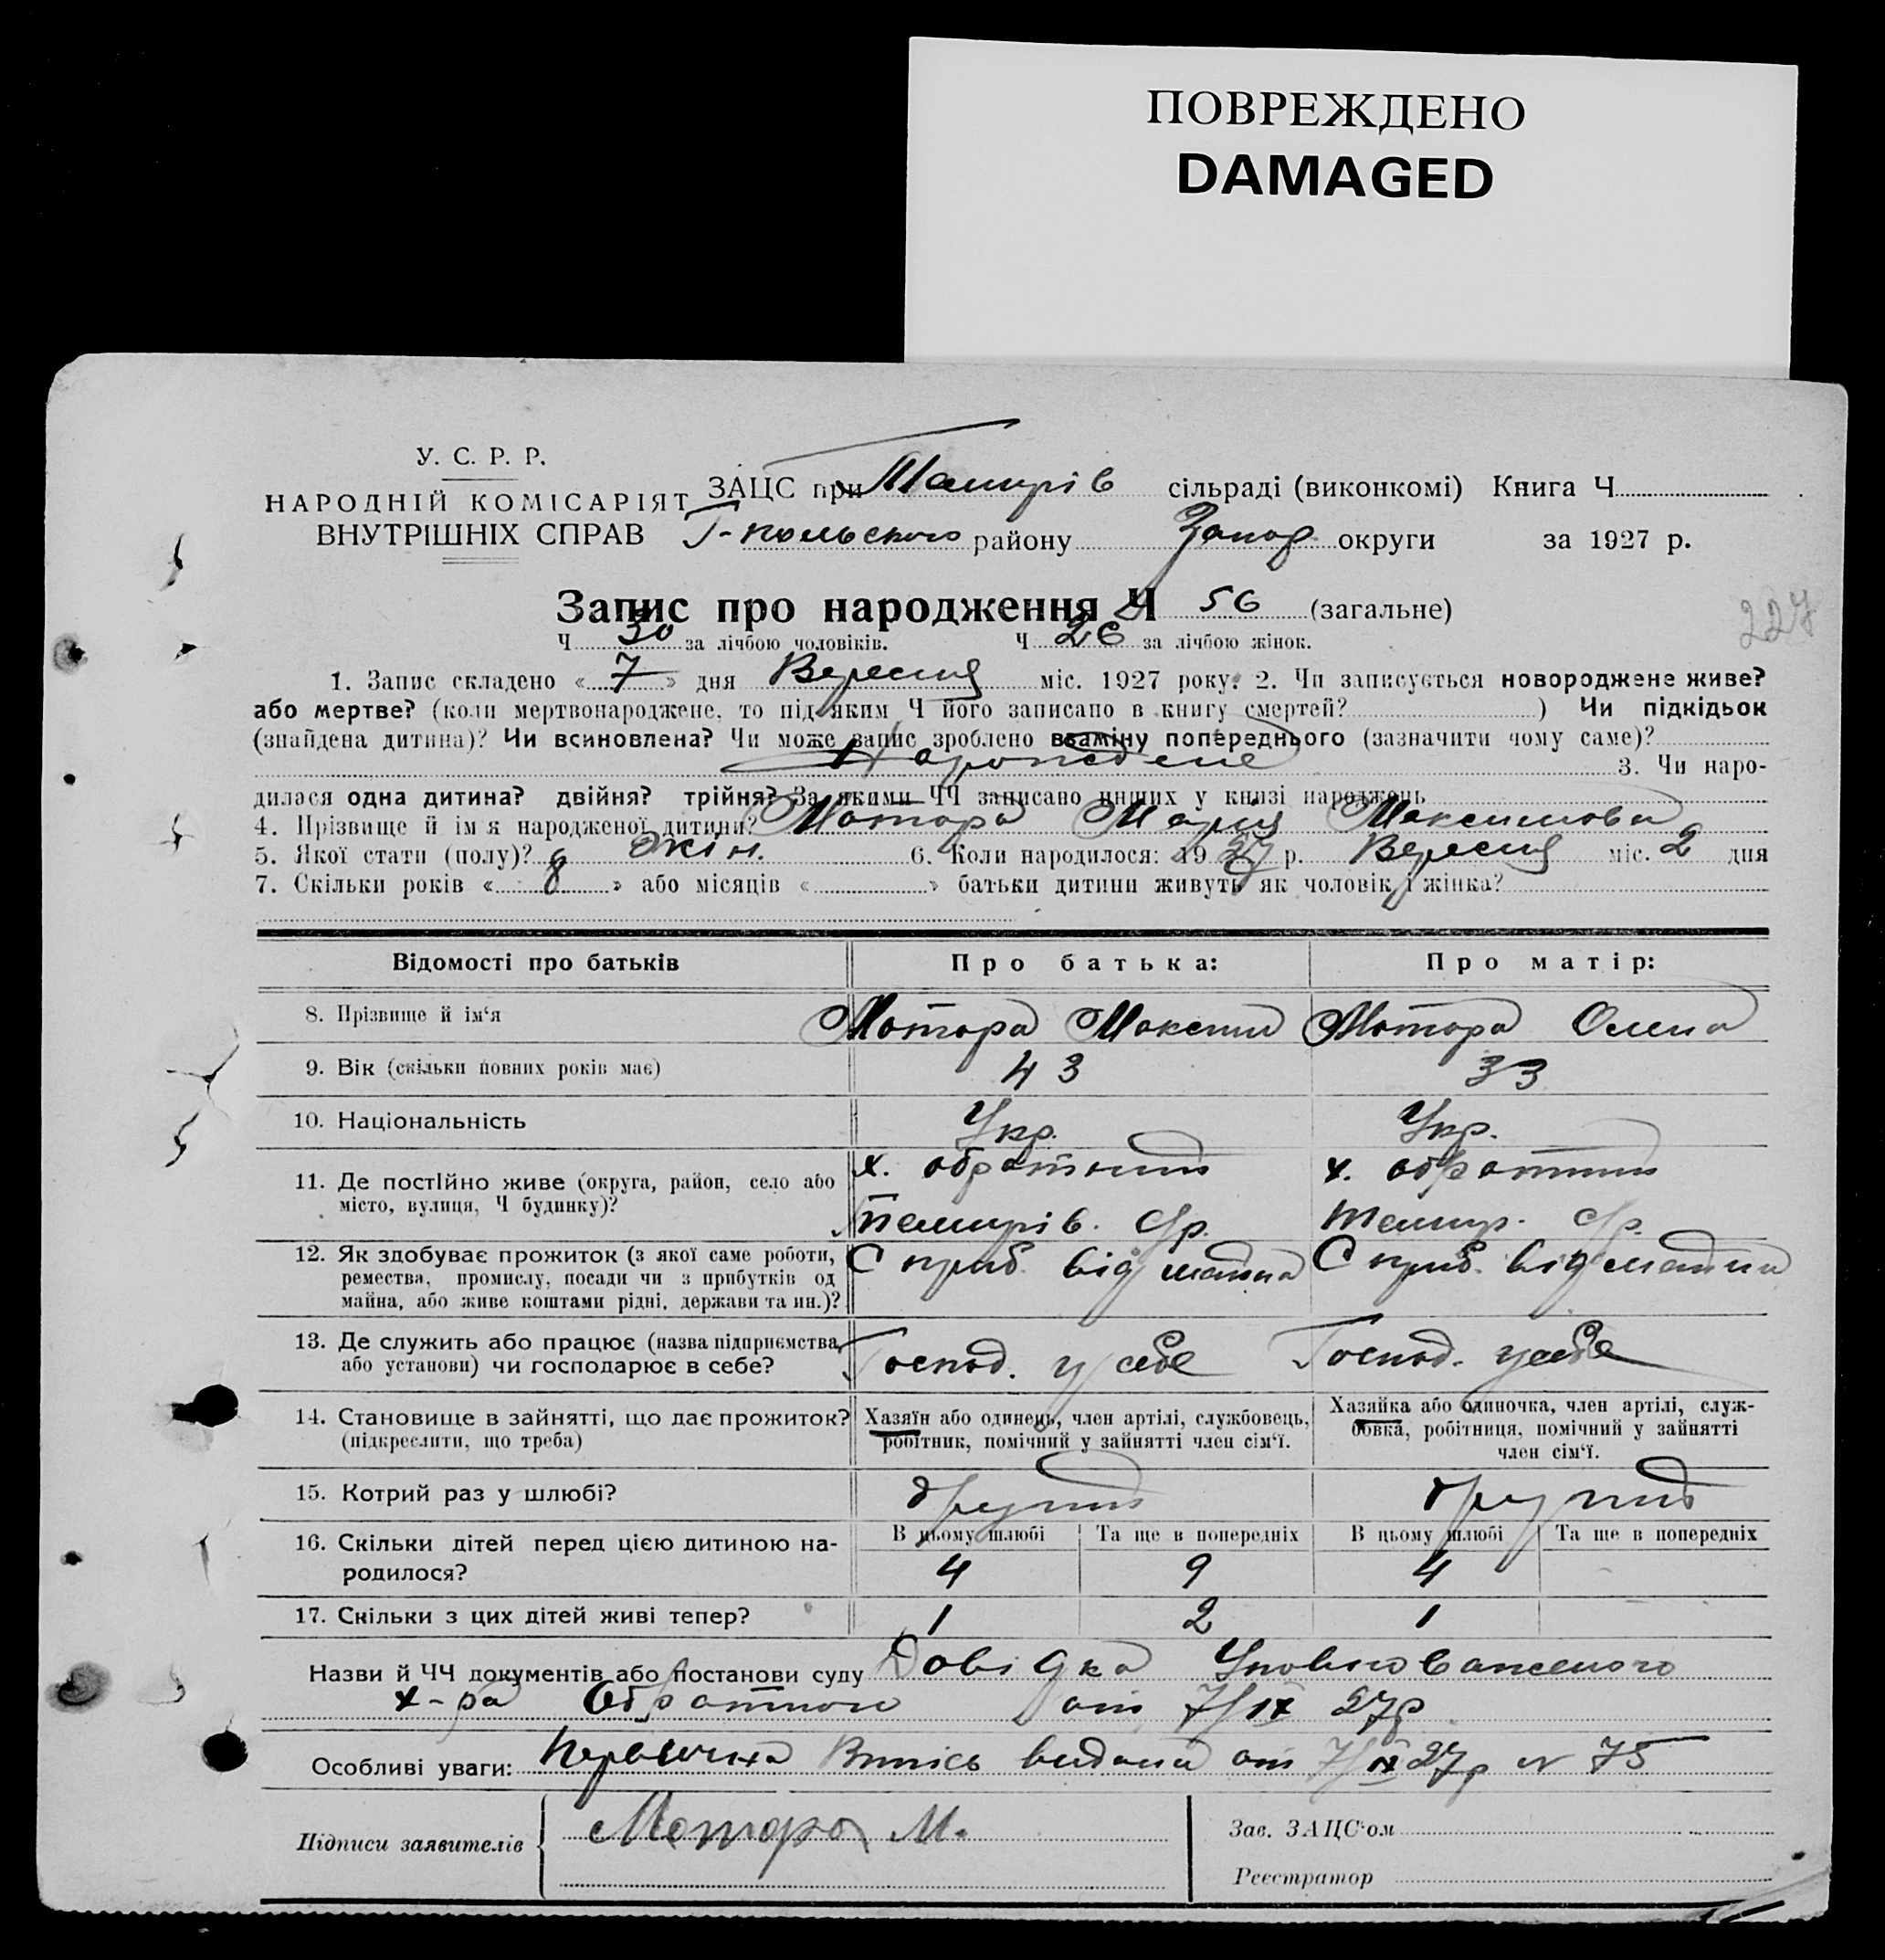 ПОВРЕЖДЕНО
DAMAGED
У. С. Р. Р.
НАРОДНІЙ КОМІСАРІЯТ
ВНУТРІШНІХ СПРАВ
ЗАЦС при Темирів сільраді (виконкомі) Книга Ч
Г-Польского району Запор. округи за 1927 р.
227
Запис про народження Ч 56 (загальне)
Ч 30 за лічбою чоловіків. Ч 26 за лічбою жінок.
1. Запис складено « 7 » дня Вересня міс. 1927 року. 2. Чи записується новороджене живе?
або мертве? (коли мертвонароджене, то під яким Ч його записано в книгу смертей? ) Чи підкідьок
(знайдена дитина)? Чи всиновлена? Чи може запис зроблено взаміну попереднього (зазначити чому саме)?
3. Чи наро-
дилася одна дитина? двійня? трійня? За якими ЧЧ записано инших у книзі народжень
4. Прізвище й ім я народженої дитини? Мотора Марія Максимовна
5. Якої стати (полу)? жін. 6. Коли народилося: 1927 р. Вересня міс. 2 дня
7. Скільки років « 8 » або місяців « » батьки дитини живуть як чоловік і жінка?
Відомості про батьків Про батька: Про матір:
8. Прізвище й ім‘я Мотора Максим Мотора Олена
9. Вік (скільки повних років має) 43 33
10. Національність Укр. Укр.
11. Де постійно живе (округа, район, село або х. обратний х. обратний
місто, вулиця, Ч будинку)? Темирів. с/р. Темир. с/р.
12. Як здобуває прожиток (з якої саме роботи, С приб. від майна С приб. від майна
ремества, промислу, посади чи з прибутків од
майна, або живе коштами рідні, держави та ин.)?
13. Де служить або працює (назва підприємства, Господ. у себе Господ. у себе
або установи) чи господарює в себе?
14. Становище в зайнятті, що дає прожиток? Хазяїн або одинець, член артілі, службовець, Хазяйка або одиночка, член артілі, служ-
(підкреслити, що треба) робітник, помічний у зайнятті член сім‘ї. бовка, робітниця, помічний у зайнятті
член сім‘ї.
15. Котрий раз у шлюбі? другий другий
16. Скільки дітей перед цією дитиною на- В цьому шлюбі Та ще в попередніх В цьому шлюбі Та ще в попередніх
родилося? 4 9 4
17. Скільки з цих дітей живі тепер? 1 2 1
Назви й ЧЧ документів або постанови суду Довідка Уповновапсеного
х-ра Обратного от 7/IX 27р
Особливі уваги: Первична Випісь видана от 7/IX 27р N 75
Підписи заявителів Мотора М.
Зав. ЗАЦС‘ом
Реєстратор